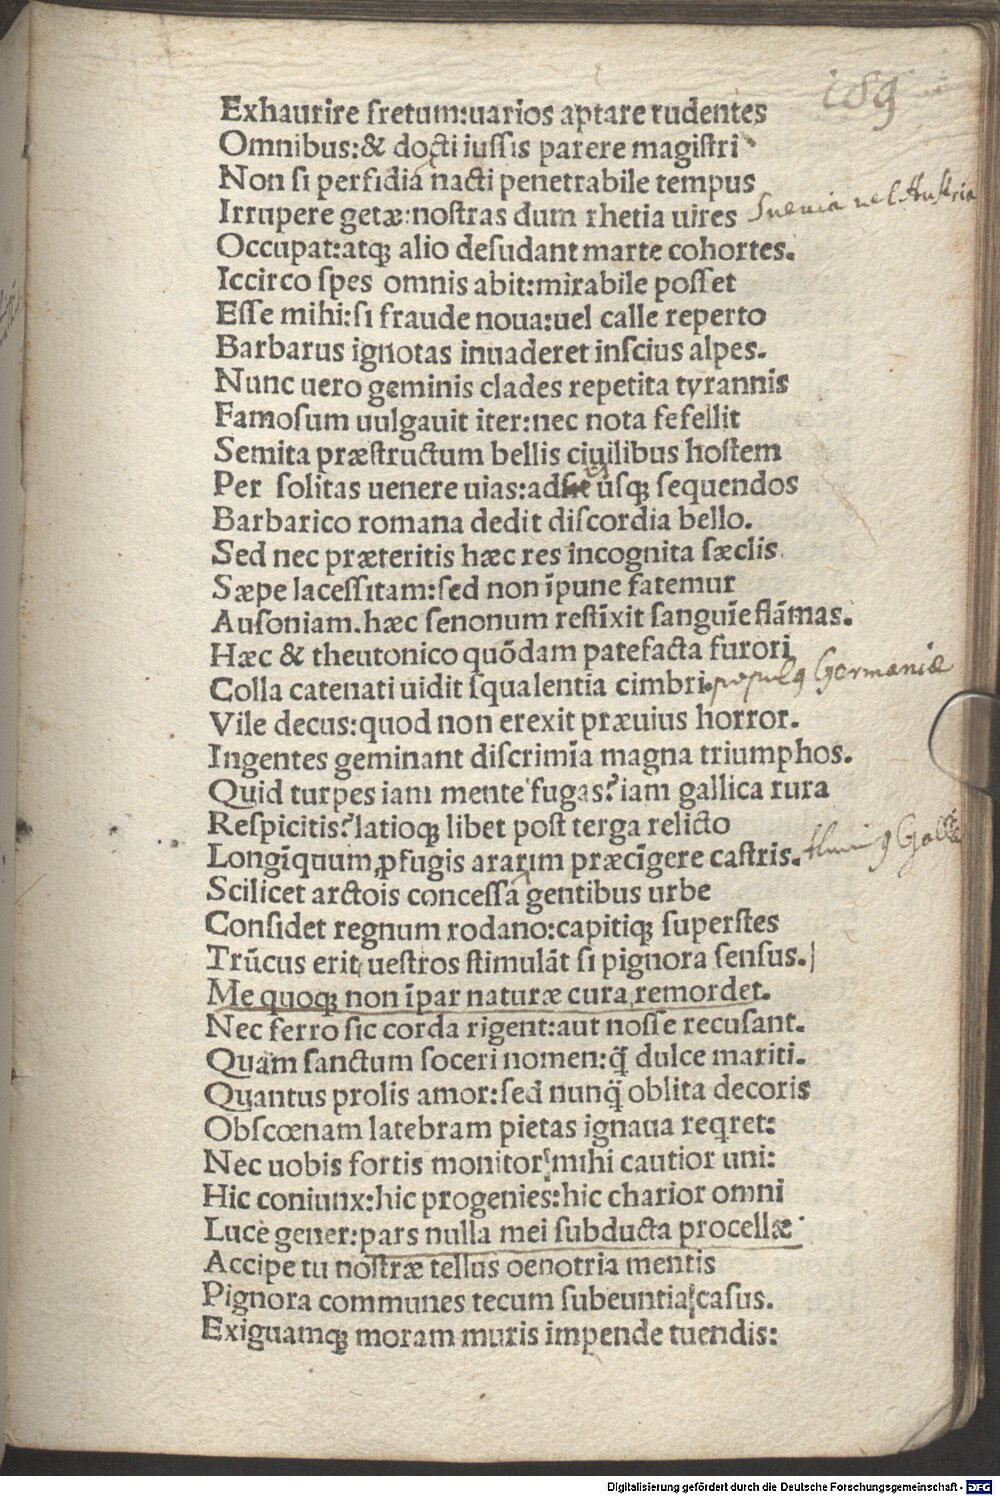 189
Exhaurire fretum:uarios aptare rudentes
Omnibus:& docti iussis parere magistri
Non si perfidia nacti penetrabile tempus
Irrupere getæ:nostras dum rhetia uires Sueuia uel Austria
Occupat:atqȝ alio desudant marte cohortes.
Iccirco spes omnis abit:mirabile posset
Esse mihi:si fraude noua:uel calle reperto
Barbarus ignotas inuaderet inscius alpes.
Nunc uero geminis clades repetita tyrannis
Famosum uulgauit iter:nec nota fefellit
Semita præstructum bellis ciuilibus hostem
Per solitas uenere uias:ad usqȝ sequendos
Barbarico romana dedit discordia bello.
Sed nec præteritis hæc res incognita sæclis.
Sæpe lacessitam:sed non īpune fatemur
Ausoniam.hæc senonum restīxit sanguīe flāmas.
Hæc & theutonico quōdam patefacta furori
Colla catenati uidit squalentia cimbri. populꝰ Germaniæ
Vile decus:quod non erexit præuius horror.
Ingentes geminant discrimīa magna triumphos.
Quid turpes iam mente fugas?iam gallica rura
Respicitis?latioqȝ libet post terga relicto
Longīquum ꝓfugis ararim præcīgere castris.
Scilicet arctois concessa gentibus urbe
Considet regnum rodano:capitiqȝ superstes
Trūcus erit uestros stimulāt si pignora sensus.
Me quoqȝ non īpar naturæ cura remordet.
Nec ferro sic corda rigent:aut nosse recusant.
Quam sanctum soceri nomen:q̄ dulce mariti.
Quantus prolis amor:sed nunq̄ oblita decoris
Obscœnam latebram pietas ignaua reqret:
Nec uobis fortis monitor mihi cautior uni:
Hic coniunx:hic progenies:hic charior omni
Luce gener:pars nulla mei subducta procellæ
Accipe tu nostræ tellus oenotria mentis
Pignora communes tecum subeuntia casus.
Exiguamqȝ moram muris impende tuendis:
Digitalisierung gefördert durch die Deutsche Forschungsgemeinschaft - DFG